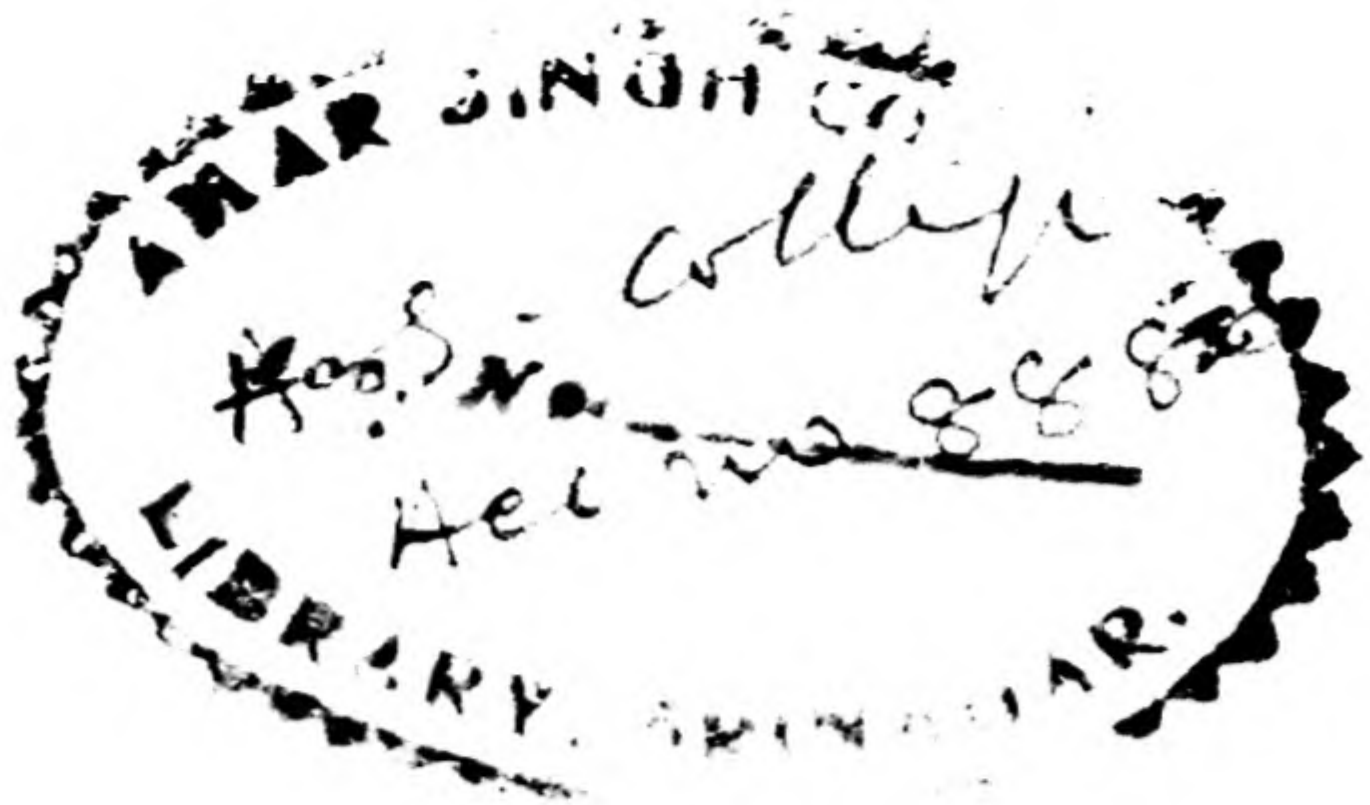 AMAR SINGH CO
College
No
Acc no 888
LIBRARY. SRINAGAR.